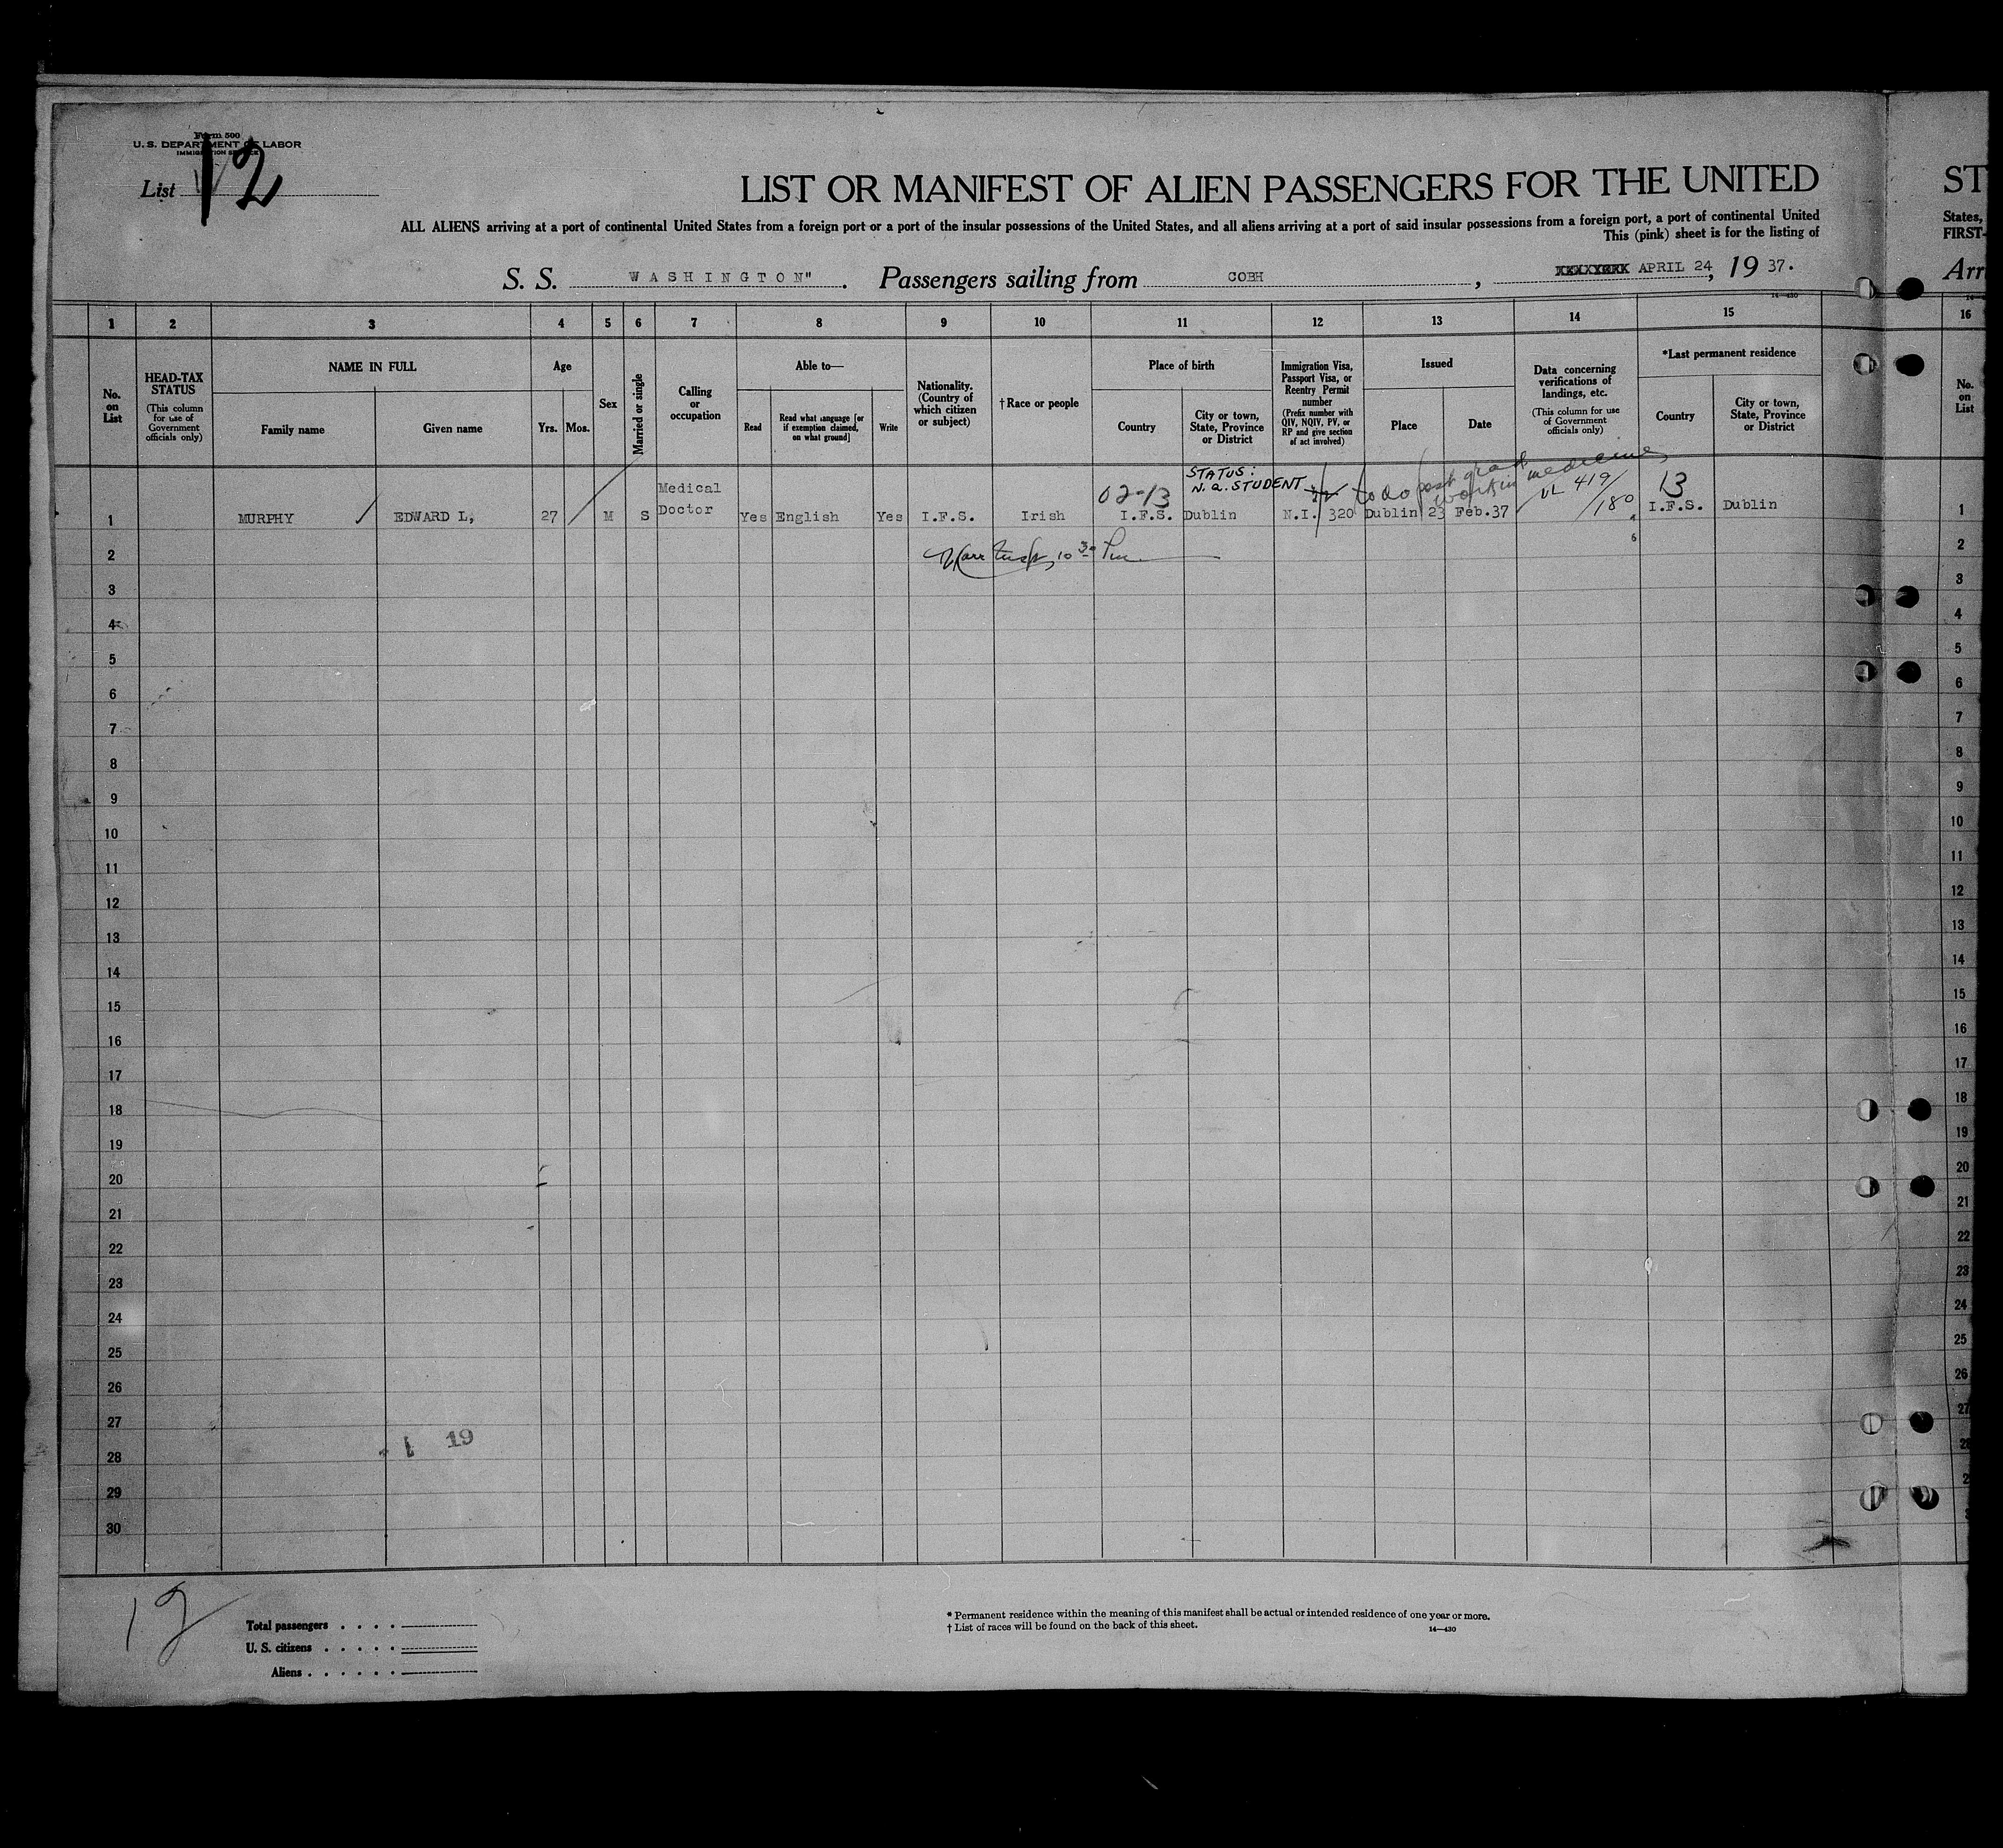 Form 500
U. S. DEPARTMENT OF LABOR
IMMIGRATION SERVICE
List 12
LIST OR MANIFEST OF ALIEN PASSENGERS FOR THE UNITED
ALL ALIENS arriving at a port of continental United States from a foreign port or a port of the insular possessions of the United States, and all aliens arriving at a port of said insular possessions from a foreign port, a port of continental United
This (pink) sheet is for the listing of
S. S. WASHINGTON". Passengers sailing from COBH, APRIL 24, 19 37.
ST
States,
FIRST-
Arr
14—430
1 2 3 4 5 6 7 8 9 10 11 12 13 14 15 16
No. on List
HEAD-TAX STATUS (This column for use of Government officials only)
NAME IN FULL
Family name Given name
Age
Yrs. Mos.
Sex
Married or single
Calling or occupation
Able to—
Read Read what language [or if exemption claimed, on what ground] Write
Nationality. (Country of which citizen or subject)
†Race or people
Place of birth
Country City or town, State, Province or District
Immigration Visa, Passport Visa, or Reentry Permit number (Prefix number with QIV, NQIV, PV, or RP and give section of act involved)
Issued
Place Date
Data concerning verifications of landings, etc. (This column for use of Government officials only)
*Last permanent residence
Country City or town, State, Province or District
No. on List
STATUS:
N.Q. STUDENT to do post grad work in medicine
02-13 VL 419/180 13
1 MURPHY EDWARD L, 27 M S Medical Doctor Yes English Yes I.F.S. Irish I.F.S. Dublin N.I. 320 Dublin 23 Feb.37 I.F.S. Dublin 1
2 10 30 Pm 2
3 3
4 4
5 5
6 6
7 7
8 8
9 9
10 10
11 11
12 12
13 13
14 14
15 15
16 16
17 17
18 18
19 19
20 20
21 21
22 22
23 23
24 24
25 25
26 26
27 27
19
28
29
30
12
Total passengers
U. S. citizens
Aliens
* Permanent residence within the meaning of this manifest shall be actual or intended residence of one year or more.
† List of races will be found on the back of this sheet.
14—430